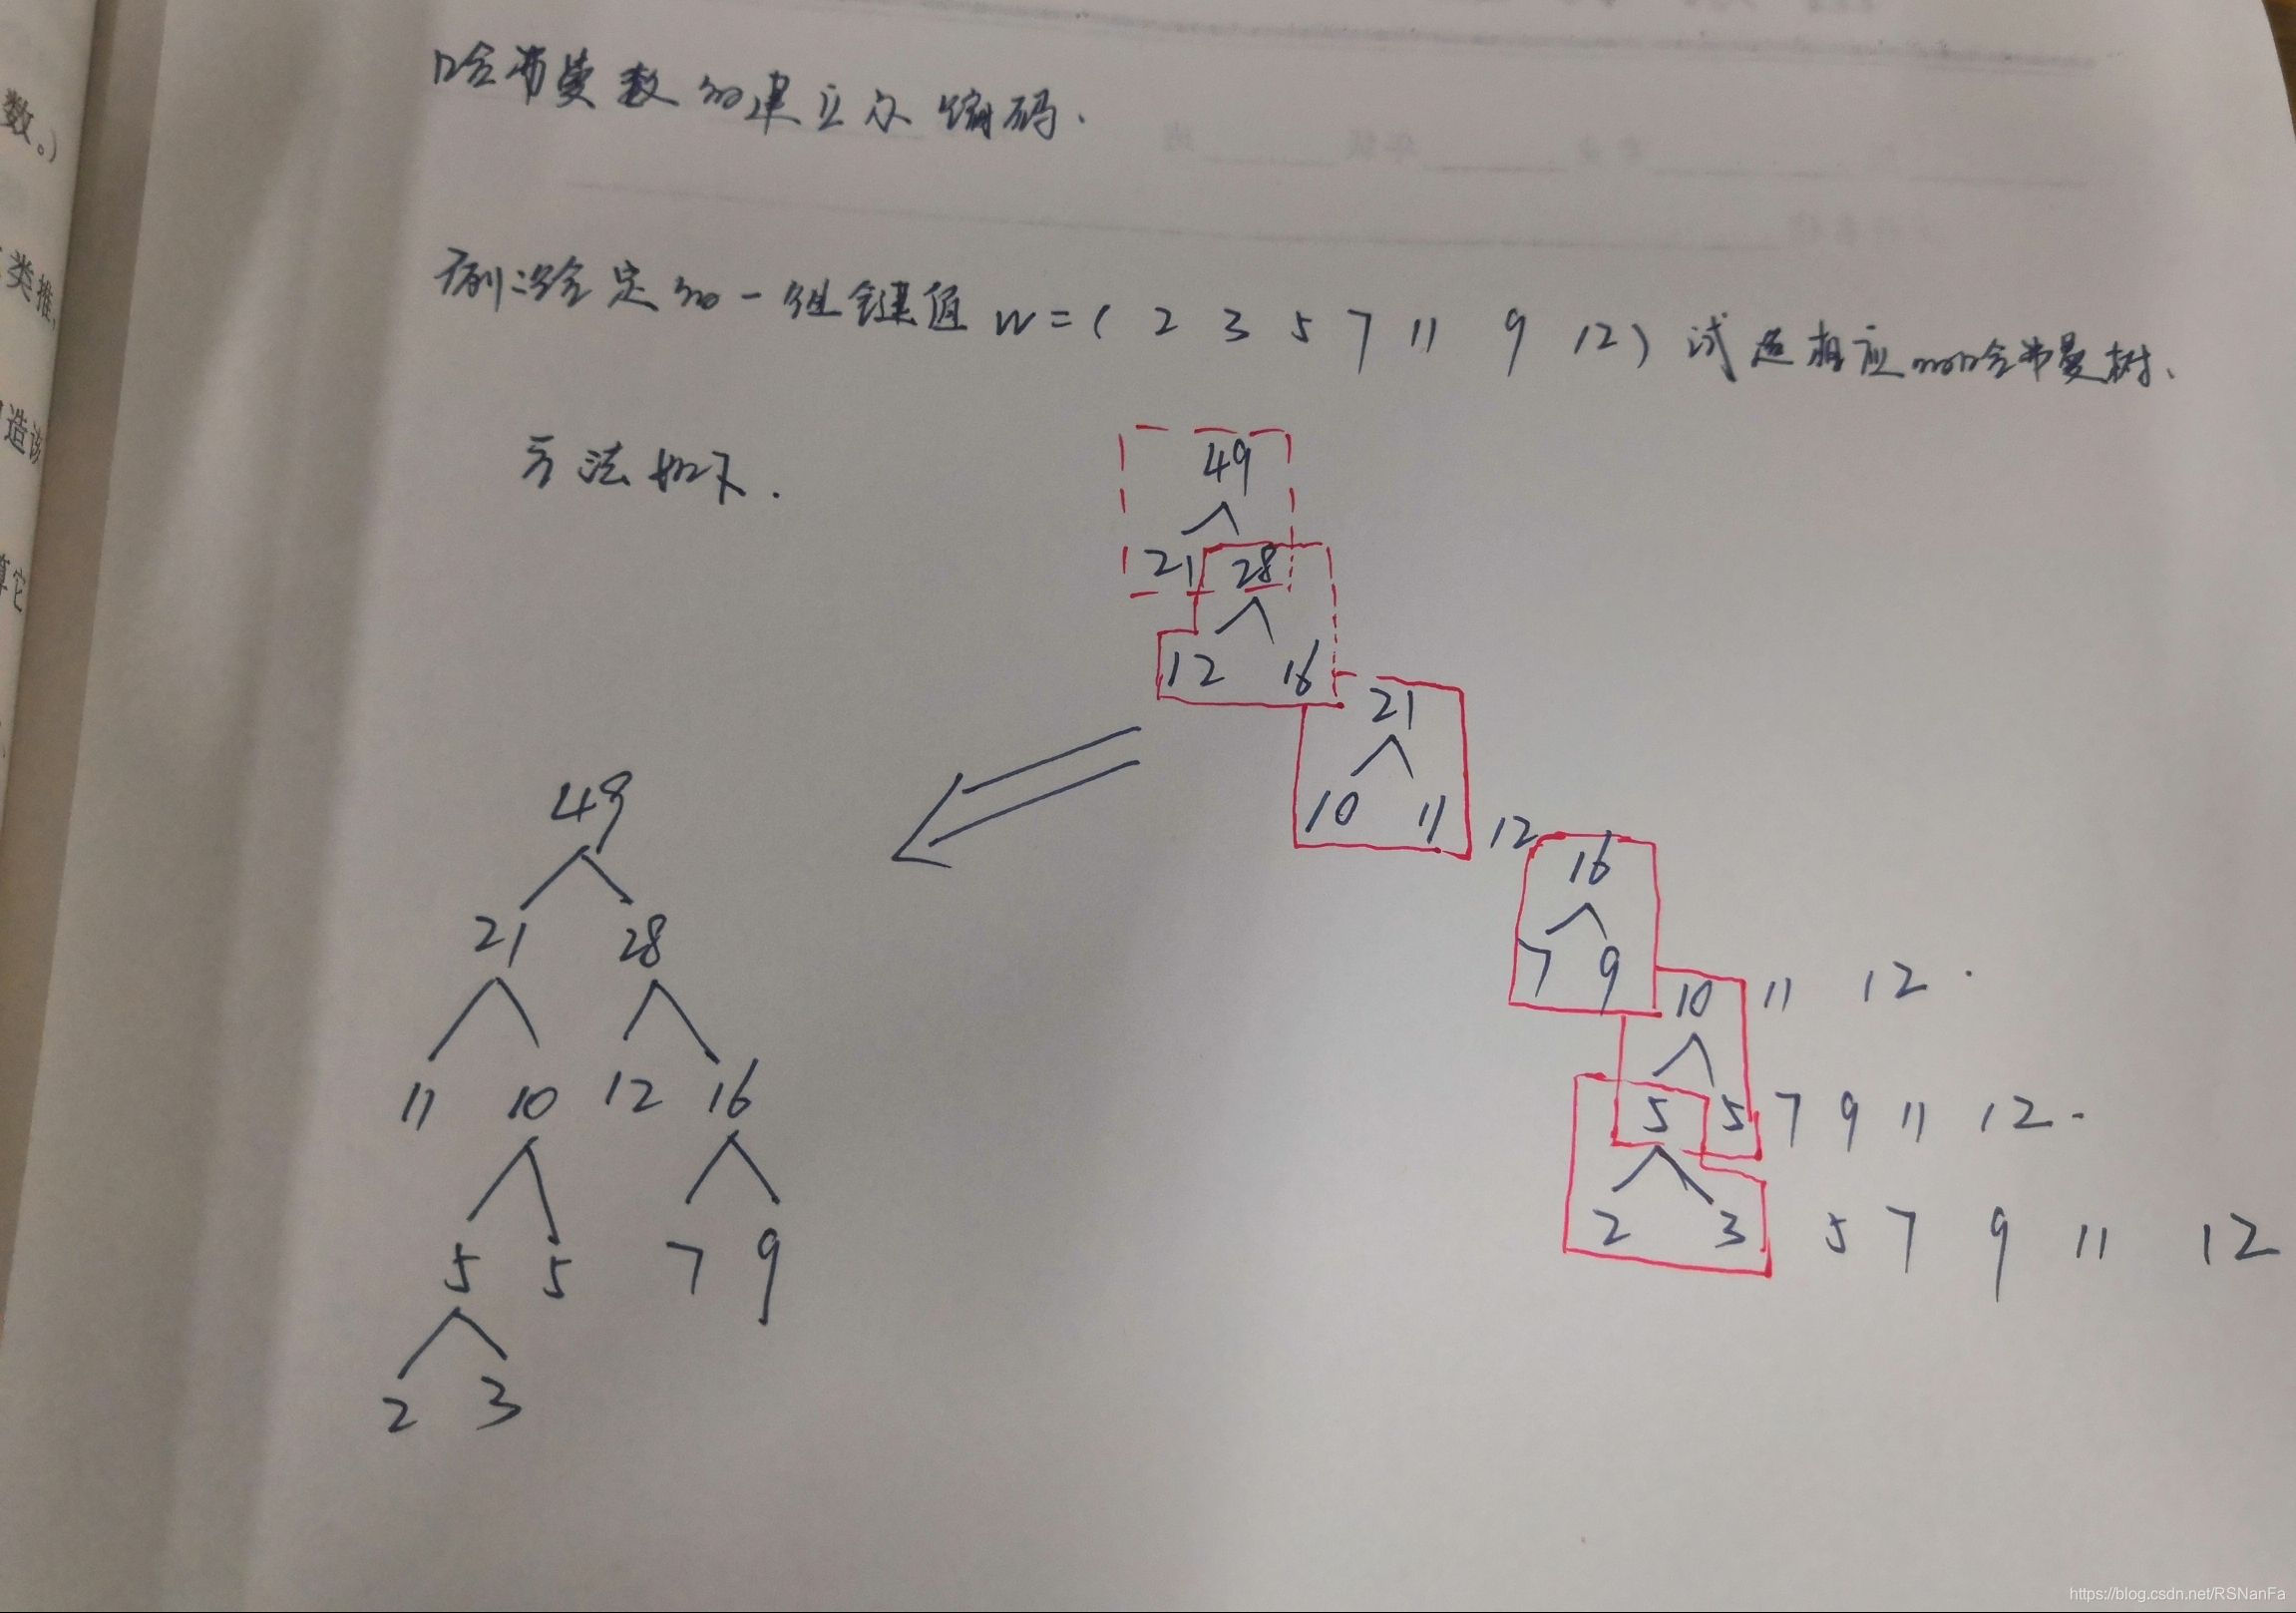 哈夫曼数的建立尔编码.
数。)
例:给定的一组键值 W=( 2 3 5 7 11 9 12) 试造相应的哈夫曼树、
类推,
造该
方法如下.
算它
49
21 28
12 16
21
10 11 12
16
7 9
10 11 12 .
5 5 7 9 11 12 .
2 3 5 7 9 11 12
49
21 28
11 10 12 16
5 5 7 9
2 3
https://blog.csdn.net/RSNanFa